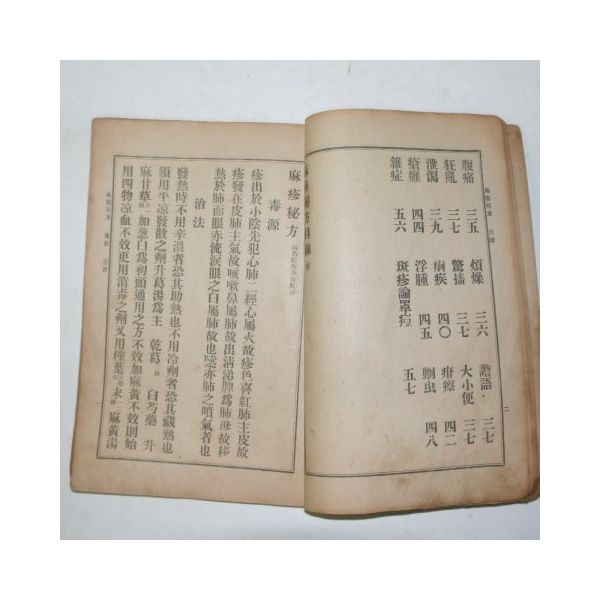 腹痛 三五 煩燥 三六 譫語 三七
狂亂 三七 驚搐 三七 大小便 三七
泄瀉 三九 痢疾 四〇 疳瘵 四二
瘡癰 四四 浮腫 四五 蛔虫 四八
雜症 五六 斑疹論單痘 五七
二
麻疹秘方
毒源
疹出於小陰先犯心肺二經心屬火故疹色喜紅肺主皮故
疹發在皮肺主氣故咳嗽鼻屬肺故出淸涕脾爲肺母故移
熱於肺而眼赤流淚眼之白屬肺故也嚔亦肺之噴氣者也
治法
發熱時不用辛溫者恐其助熱也不用冷劑者恐其藏熱也
須用平凉發散之劑升葛湯爲主 乾葛 白芍藥 升
麻甘草 加葱白爲初頭通用之方不效加麻黃不效則始
用四物凉血不效更用消毒之劑又用檉葉 末 麻黃湯